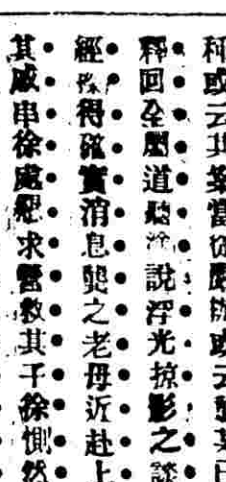 或云其案當從嚴辦或云
釋回全屬道聽塗說浮光掠影之談
經得確實消息龔之老母近赴上
其戚串徐處懇求營救其子徐惻然